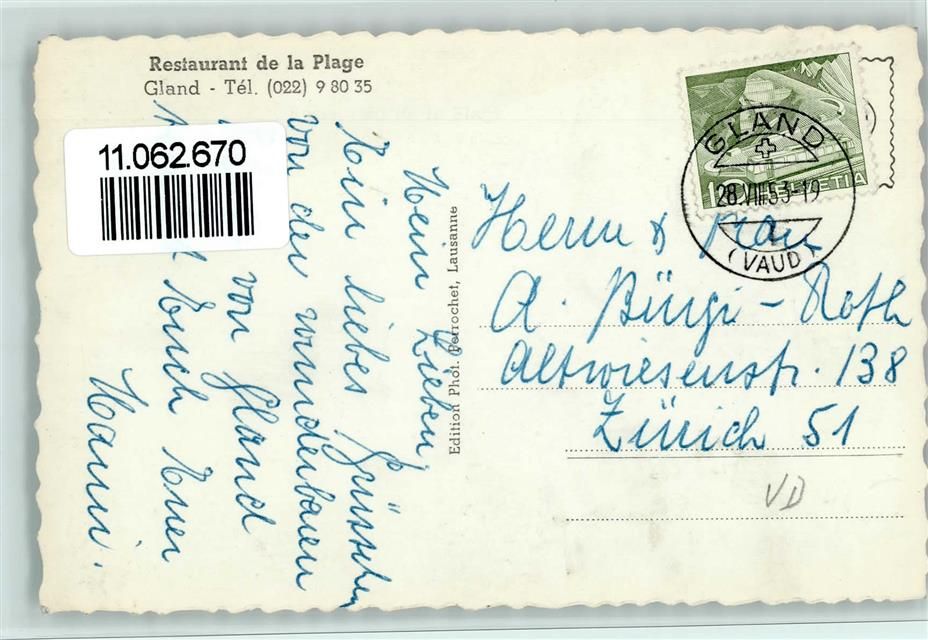 Restaurant de la Plage
Gland - Tél. (022) 9 80 35
11.062.670
Mein Lieben,
Ein liebes Grüsschen
von der wunderbaren
von Gland
Euch Euer
Hanni.
Edition Phot. Perrochet, Lausanne
GLAND
28.VIII.53-19
(VAUD)
10 HELVETIA
Herrn & Frau
A. Bürgi-Roth
Altwiesenstr. 138
Zürich 51
VD